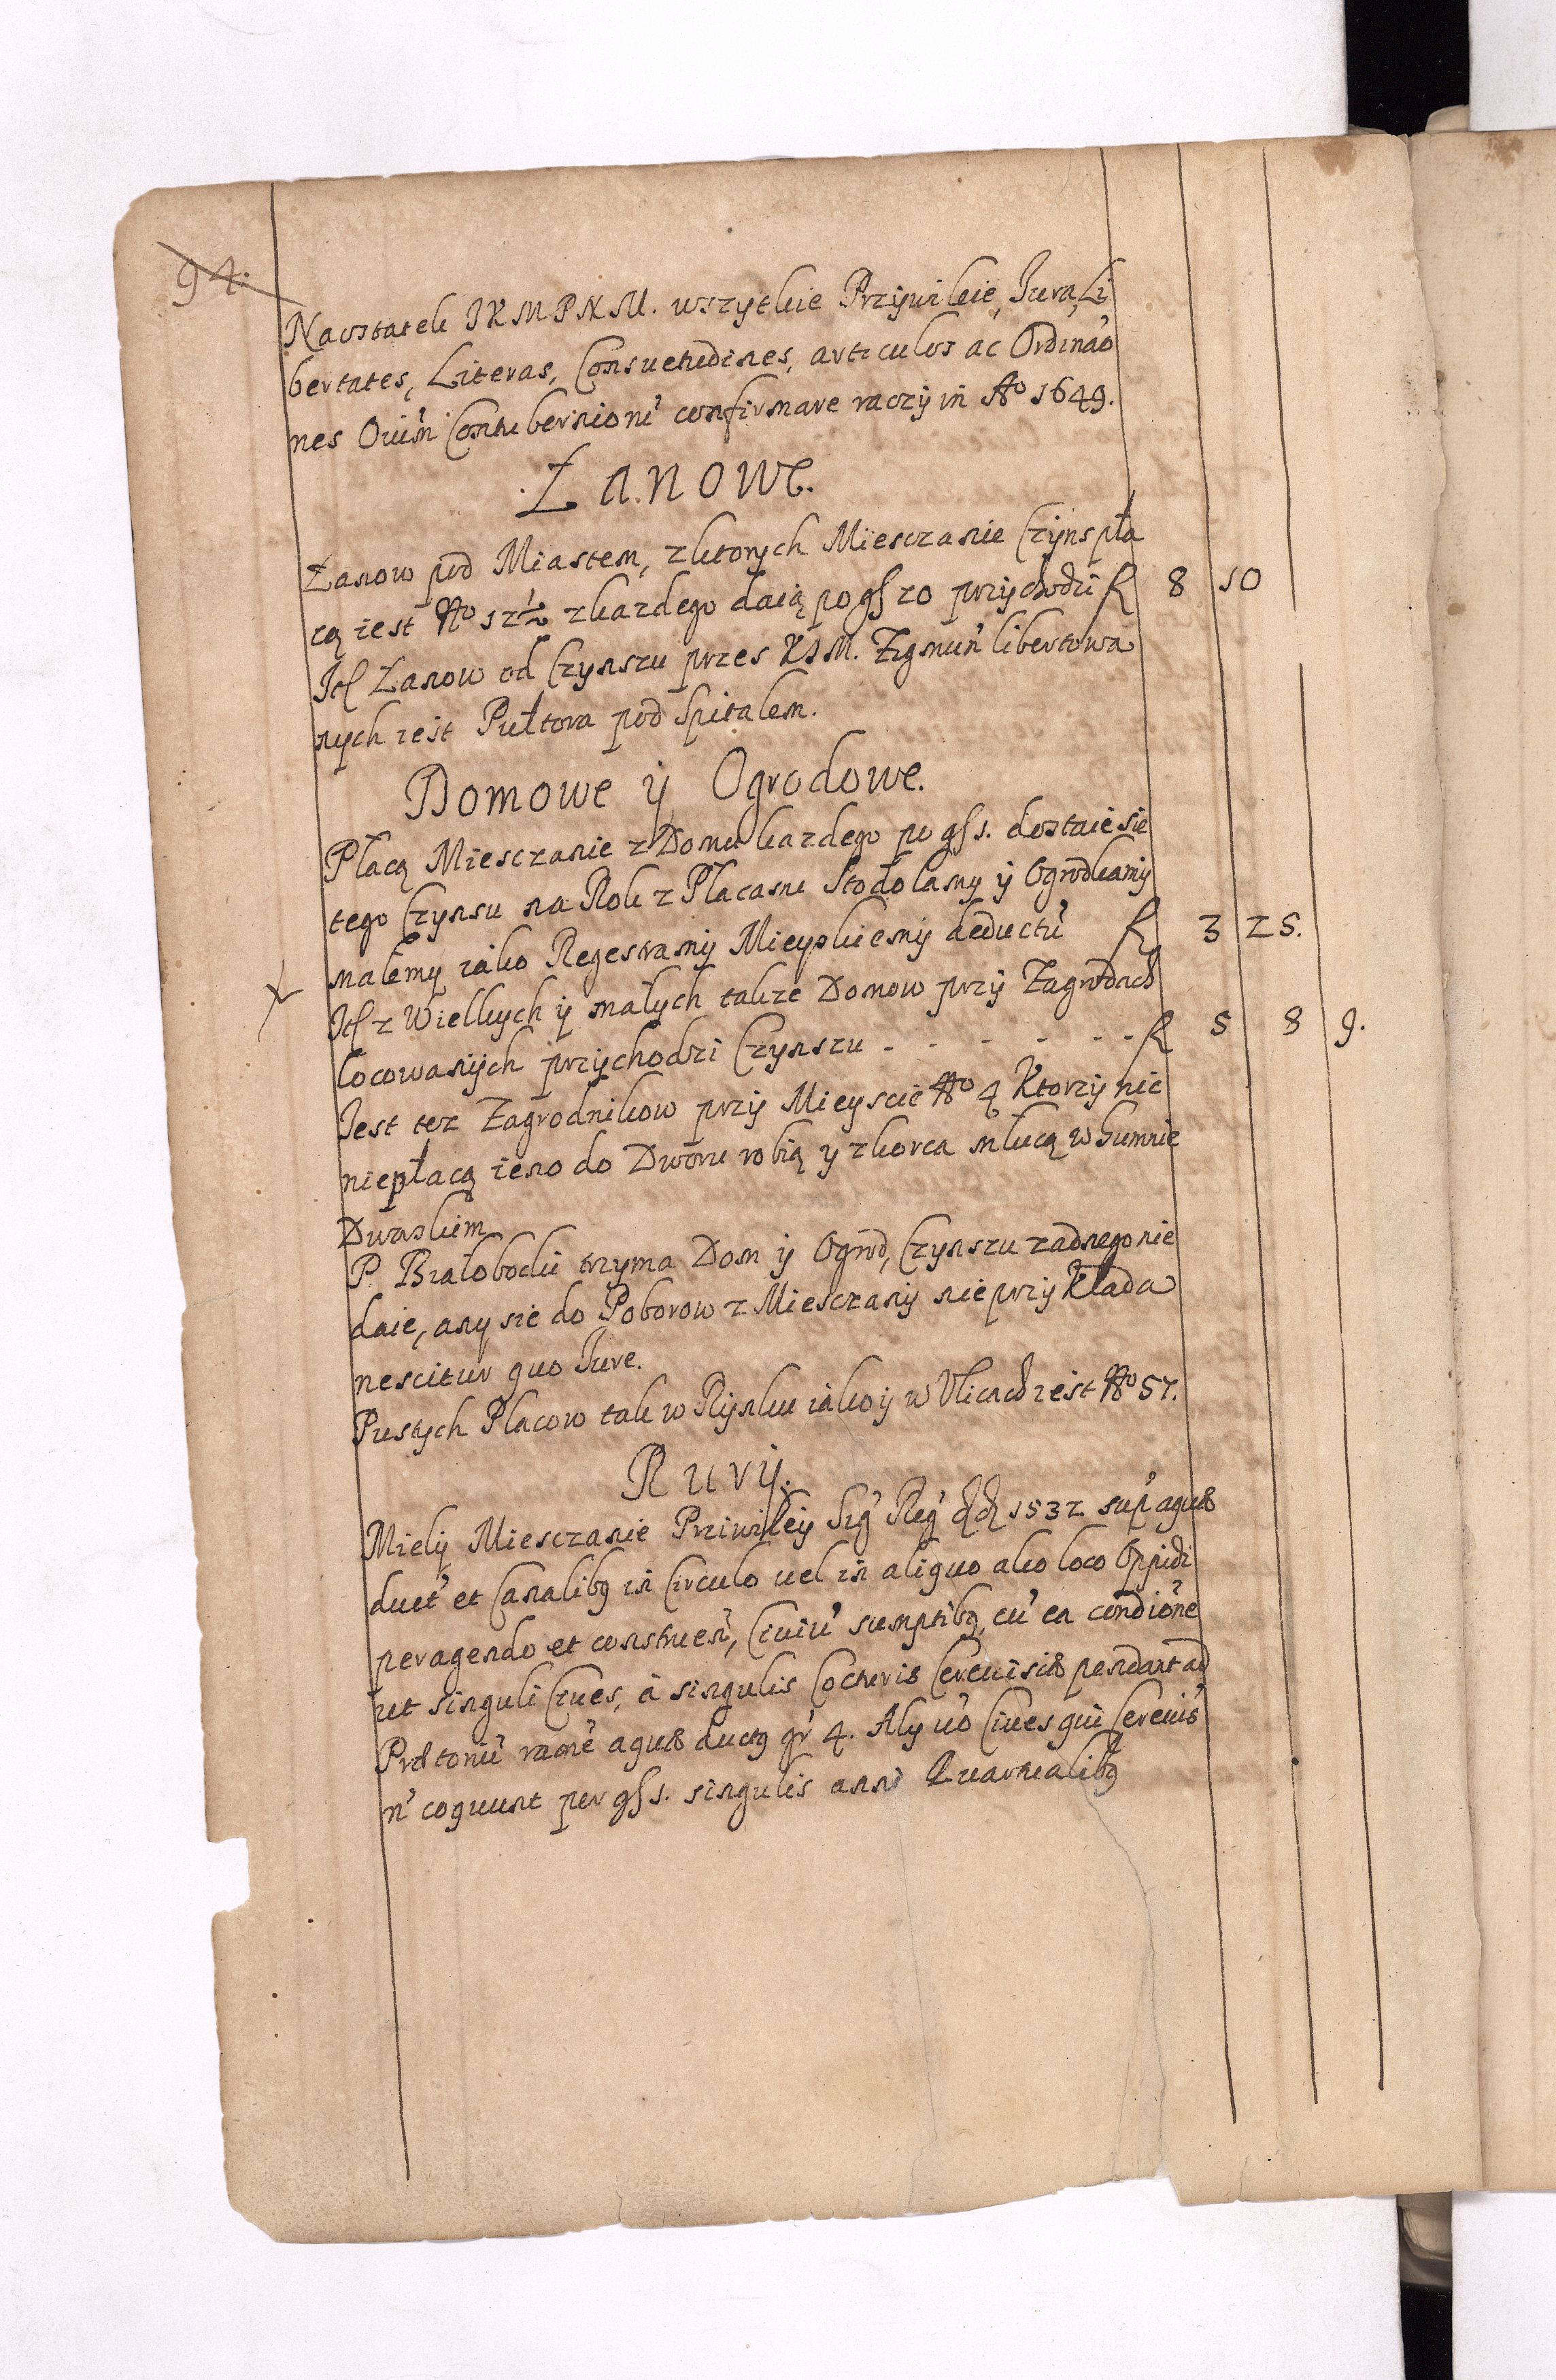 94.
Naostatek JKMPNM. wszytkie Przywileie, Iura, Li
bertates, Literas, Consuetudines, articulos ac Ordinao
nes Oium Contubernioru' confirmare raczÿ in Ao 1649.
ŁANOWE.
Łanow pod Miastem, z ktorych Miesczanie Czÿns pła
cą iest No 12½ z kazdego daią po gſ 20 przychodzi R 8 10
Itſ Łanow od Czynszu przes KJM. Zigmun' libertowa
nych iest Pułtora pod Spitalem.
Domowe ÿ Ogrodowe.
Płacą Miesczanie z Domu kazdego po gſ 1. dostaie sie
tego Czynsu na Rok z Placami Stodolamy ÿ Ogrodkamÿ
małemy iako Regestramÿ Mieyskiemÿ deductu' R 3 25.
Itſ z Wielkych ÿ małych takze Domow przÿ Zagrodach
locowanÿch przÿchodzi Czynszu - - - - - - R 5 8 9.
Iest tez Zagrodnikow przÿ Mieyscie No 4 Ktorzÿ nic
niepłacą ieno do Dworu robią y z korca młucą w Gumnie
Dworskim
P. Białobocki trzyma Dom ÿ Ogrod, Czynszu zadnego nie
daie, any sie do Poborow z Miesczanÿ nie przÿkłada
nescitur quo Iure.
Pustÿch Placow tak w Rÿnku iako ÿ w Vlicach iest No 57.
Rurÿ.
Mielÿ Miesczanie Prziwileÿ Sig' Reg' dd 1532 sup' aquæ
duct' et Canalibq in Circulo uel in aliquo alio loco Oppidi
peragendo et construen', Ciuiu' sumptibq, cu' ea condione
ut singuli Ciues, à singulis Cocturis Cereuisiæ pendant ad
Prætoriu' raone' aquæ ductq gr' 4. Aly uo' Ciues qui Cereuis'
n' coquunt per gſ 1. singulis anni Quartualibq